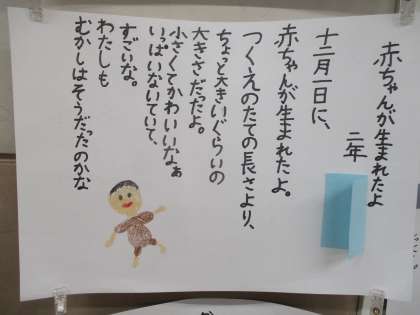 赤ちゃんが生まれたよ
二年
十二月一日に、
赤ちゃんが生まれたよ。
つくえのたての長さより、
ちょっと大きいぐらいの
大きさだったよ。
小さくてかわいいなぁ
いっぱいないていて、
すごいな。
わたしも
むかしはそうだったのかな